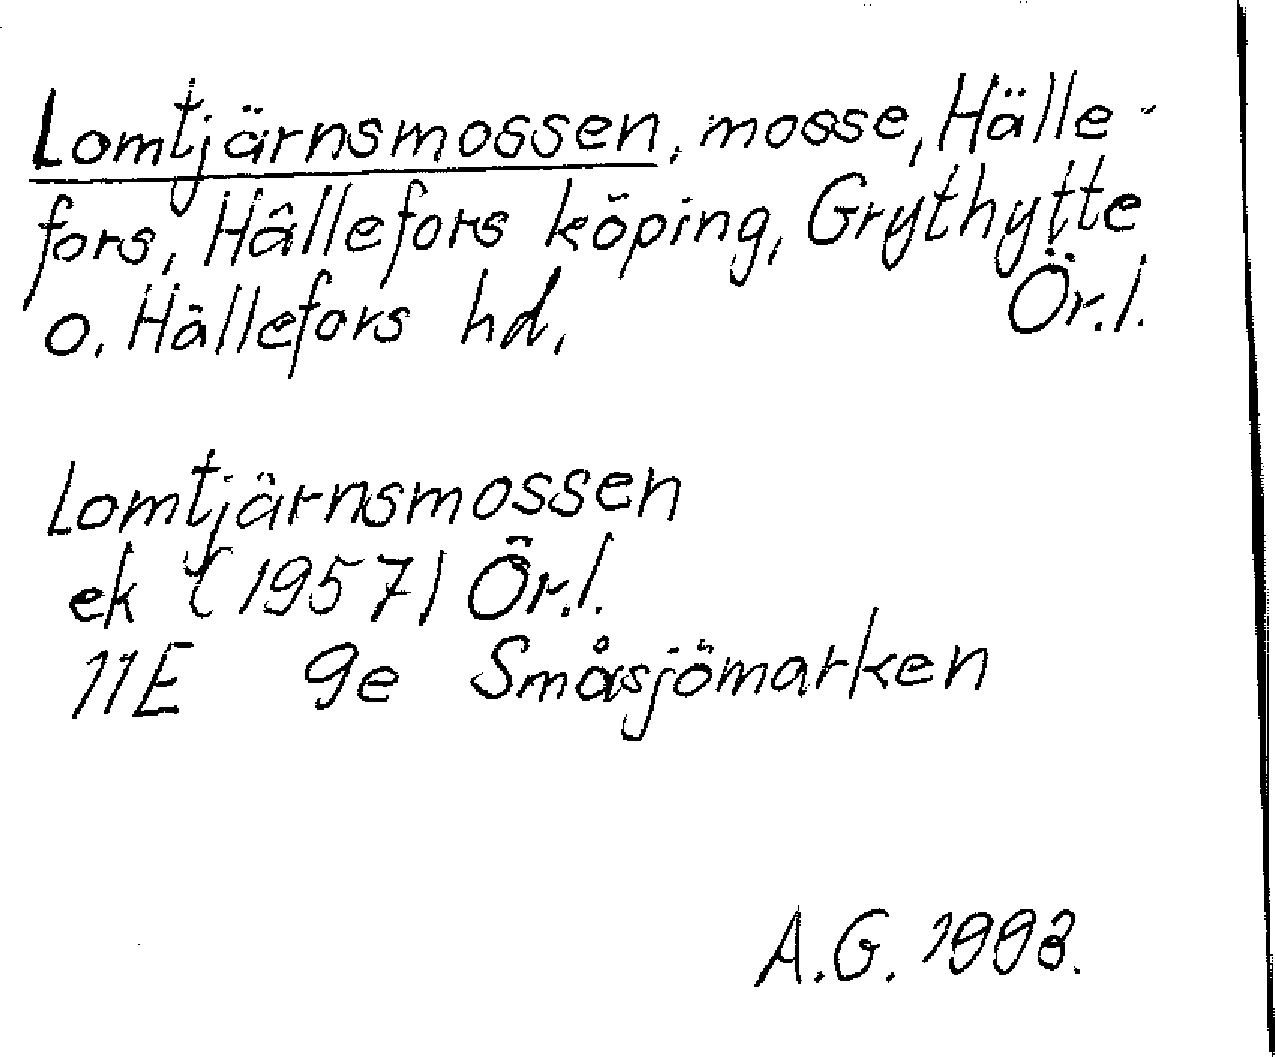 Lomtjärnsmossen, mosse, Hälle-
fors, Hällefors köping, Grythytte
o. Hällefors hd, Ör.l.
Lomtjärnsmossen
ek (1957) Ör.l.
11E 9e Småsjömarken
A.G. 1993.